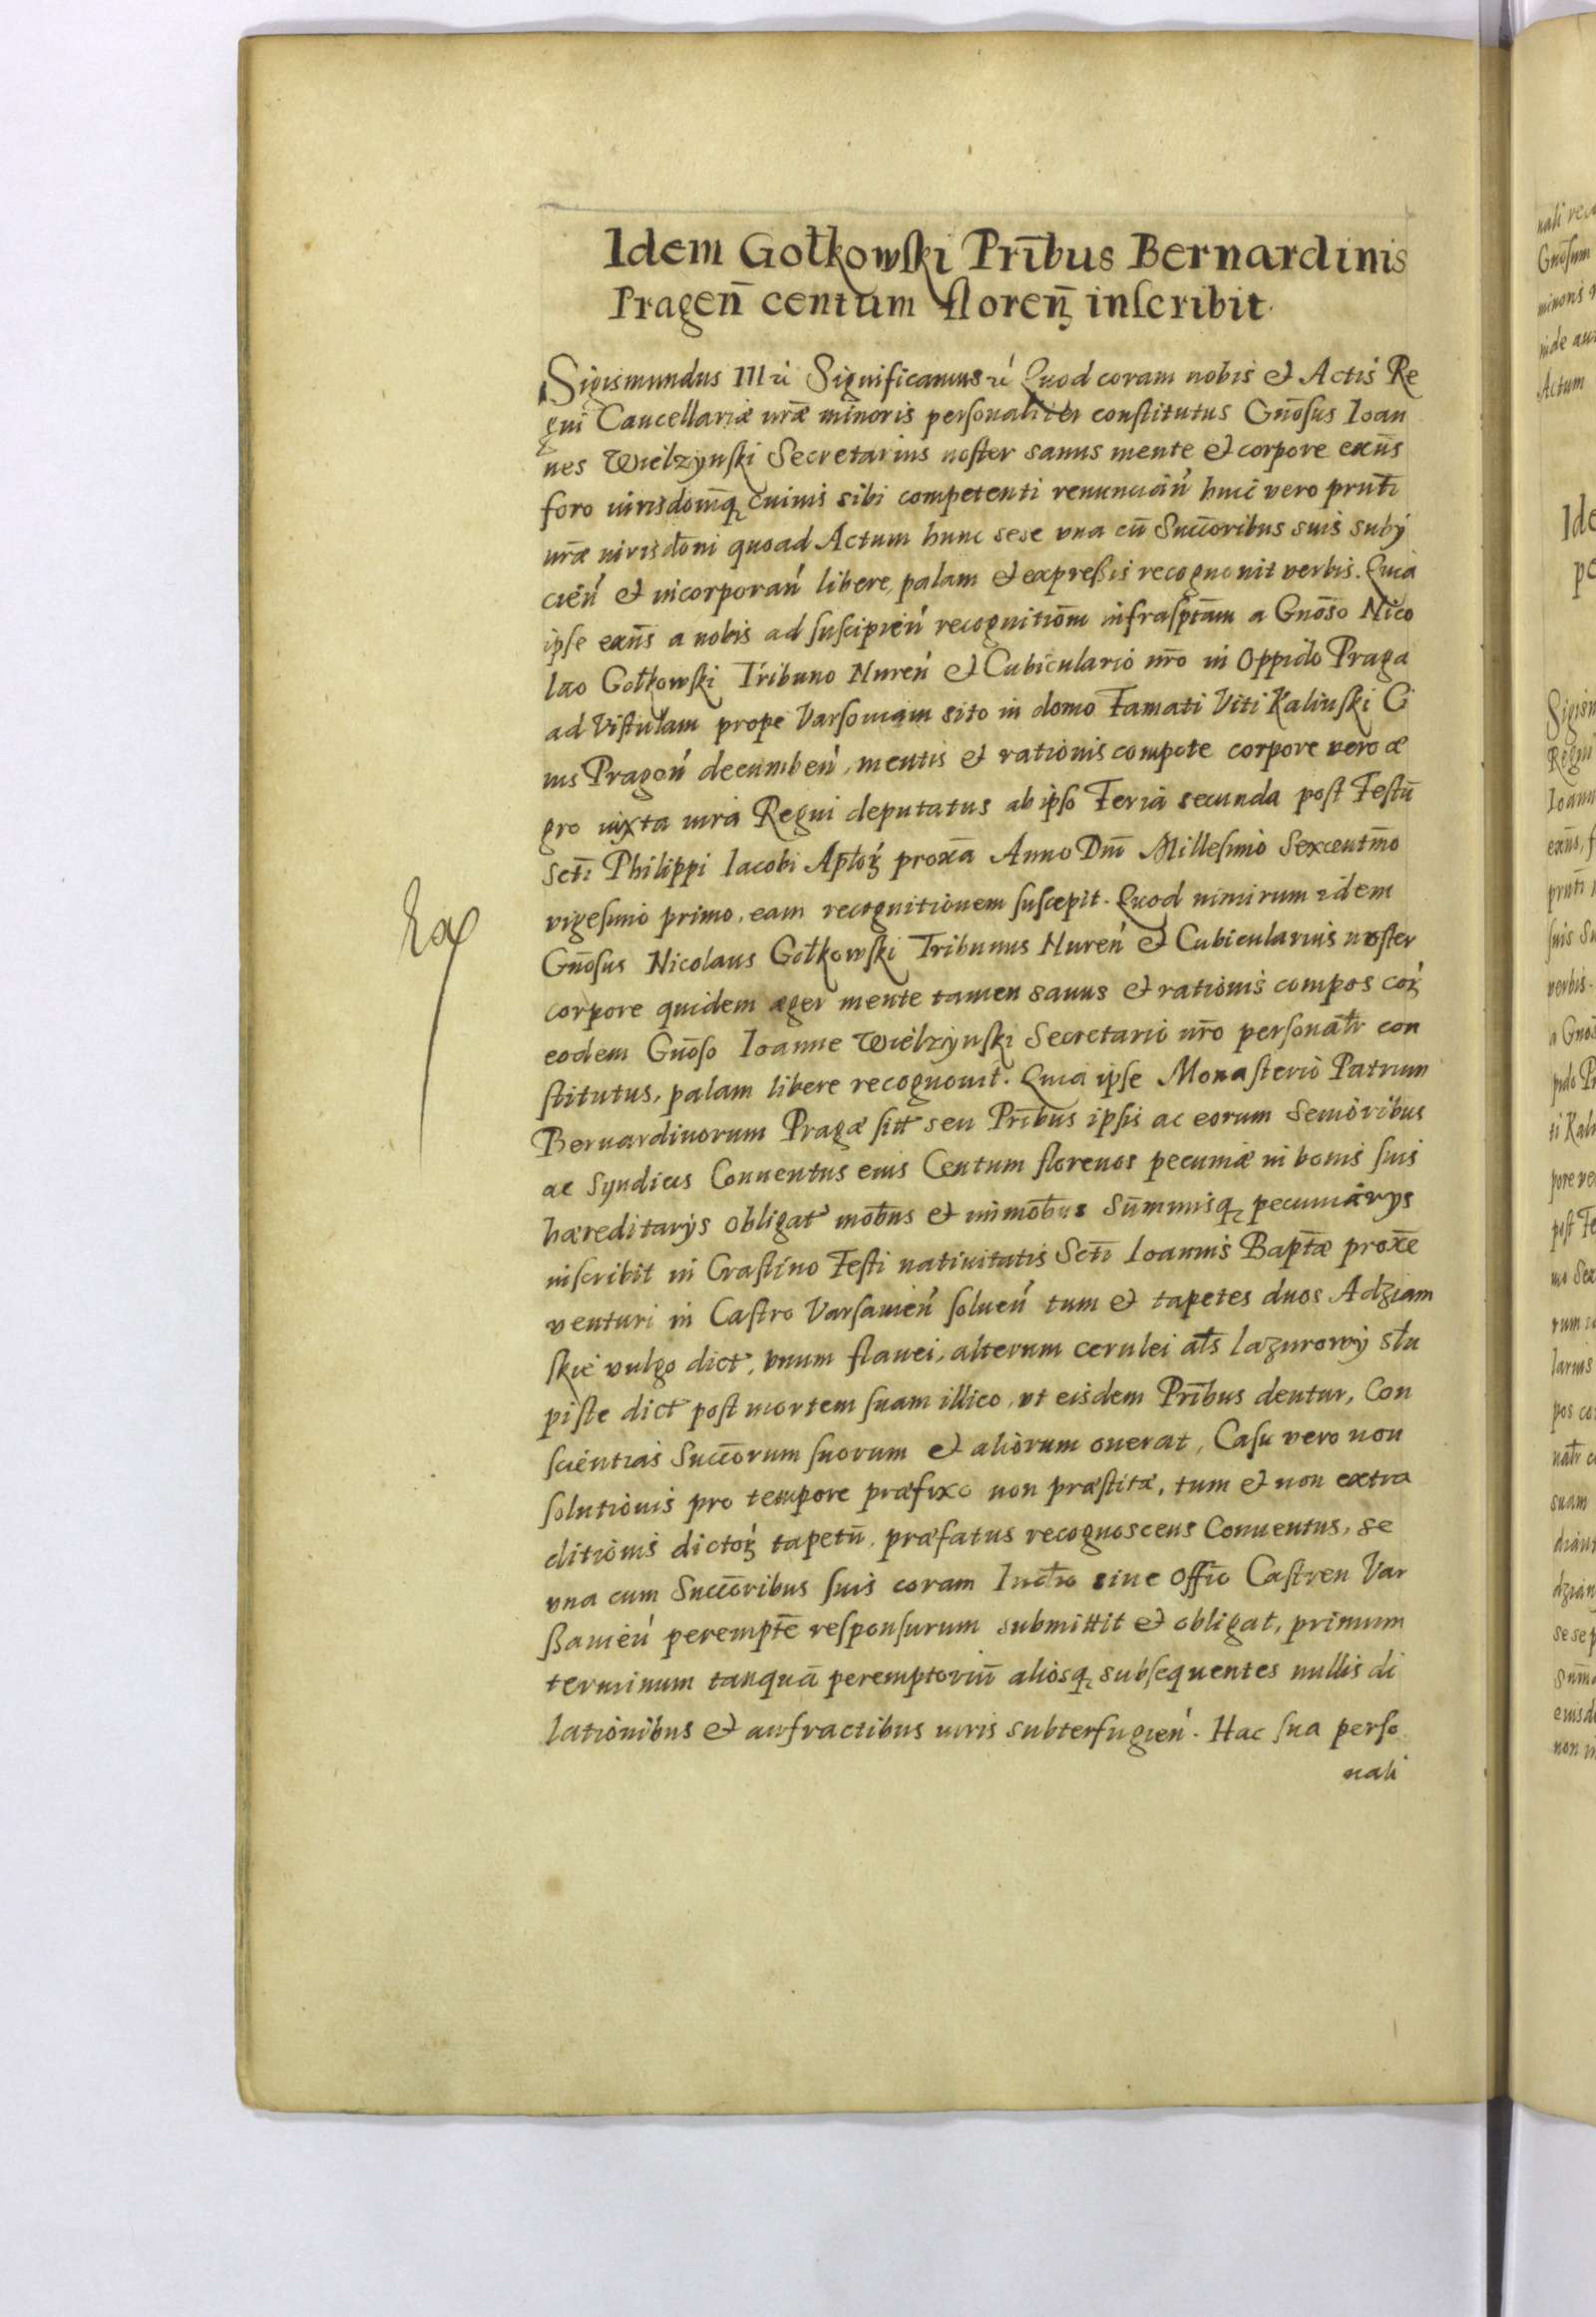 Idem Gołkowski Prībus Bernardinis
Pragen̄ centum floren̄ inscribit.
Sigismundus III rć Significamus rć Quod coram nobis et Actis Re
gni Cancellariæ nr̄æ minoris personaliter constitutus Gnōsus Ioan
nes Wielzynski Secretarius noster sanus mente et corpore exn̄s
foro iurisdom̄q cuiuis sibi competenti renuncian̄ huic vero prnt̄i
nr̄æ iurisdoni quoad Actum hunc sese vna cū Succōribus suis subÿ
cień et incorporań libere, palam et expreßis recognouit verbis. Quia
ipse exn̄s a nobis ad suscipień recognitiōm infrasptām a Gnōso Nico
lao Gołkowski Tribuno Nureń et Cubiculario nr̄o in Oppido Praga
ad Vistulam prope Varsouiam sito in domo Famati Viti Kalinski Ci
uis Prageń decumbeń, mentis et rationis compote corpore vero æ
gro iuxta iura Regni deputatus ab ipso Feria secunda post Festū
Sct̄i Philippi Iacobi Apłoȝ proxā Anno Dnī Millesimo Sexcentm̄o
vigesimo primo, eam recognitionem suscepit. Quod nimirum idem
Gnōsus Nicolaus Gołkowski Tribunus Nureń et Cubicularius noster
corpore quidem æger mente tamen sanus et rationis compos coȝ
eodem Gnōso Ioanne Wielzynski Secretario nr̄o personałr con
stitutus, palam libere recognouit. Quia ipse Monasterio Patrum
Bernardinorum Pragæ sitt seu Prībus ipsis ac eorum Senioribus
ac Syndicis Conuentus eius Centum florenos pecuniæ in bonis suis
hæreditarÿs obligat mob̄us et immob̄us Sūmmisq pecuniarÿs
inscribit in Crastino Festi natiuitatis Sct̄i Ioannis Bapt̄æ proxē
venturi in Castro Varsauień solueń tum et tapetes duos Adziam
skie vulgo dict, vnum flauei, alterum cerulei als lazurowÿ słu
piste dict post mortem suam illico, vt eisdem Prībus dentur, Con
scientias Succōrum suorum et aliorum onerat, Casu vero non
solutionis pro tempore præfixo non præstitæ, tum et non extra
ditionis dictoȝ tapetū, præfatus recognoscens Conuentus, se
vna cum Succōribus suis coram Iudicio siue Offīo Castren Var
ßauień perempt̄e responsurum submittit et obligat, primum
terminum tanquā peremptoriū aliosq subsequentes nullis di
lationibus et anfractibus iuris subterfugień. Hac sua perso
nali